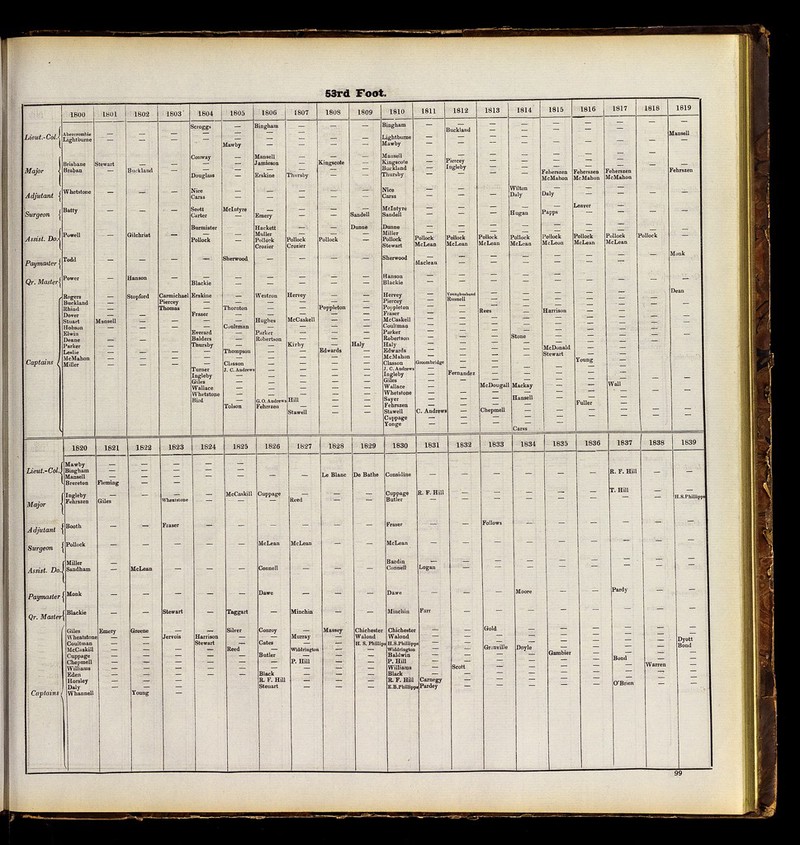 53rd Foot.
1800 1801 1802 1803 1804 1805 1806 1807 1808 1809 1810 1811 1812 1813 1814 1815 1816 1817 1818 1819
Lieut.-Col.
Abercrombie — — — Scroggs — Bingham — — — Bingham — Buckland — — — — — — Mansell
Lightburne — — — — Mawby — — — — Lightburne
Mawby
Major
Brisbane Stewart — — Conway — Mansell — Kingscote — Mansell — Piercey — — Feherszen Feherszen Feherszen — Fehrszen
Jamieson Kingscote Ingleby McMahon McMahon McMahon
Braban — Buckland — Douglass — Erskine Thursby — — Buckland
Thursby
Adjutant
Whetstone — — — Nice — — — — — Nice — — — Wilton
Caras Caras Daly Daly
Surgeon
Batty — — — Scott McIntyre — — — — McIntyre — — — Hogan Papps Leaver
Carter — Emery — — Sandell Sandell
Assist. Do.
Powell — Gilchrist — Burmister — Hackett — — Dunne Dunne
Muller Miller
Pollock — Pollock Pollock Pollock — Pollock Pollock Pollock Pollock Pollock Pollock Pollock Pollock Pollock
Crozier Crozier Stewart McLean McLean McLean McLean McLean McLean McLean
Paymaster
Todd — — — — Sherwood — — — — Sherwood Maclean — — — — — — — Monk
Qr. Master
Power — Hanson — — — — — — — Hanson — — — — — — — — Dean
Blackie Blackie
Captains
Rogers — Stopford Carmichael Erskine — Westron Hervey — — Hervey — Younghusband
Buckland Piercey Piercey Russell
Rhind Thomas — Thornton — — Poppleton — Poppleton — — Rees — Harrison
Dover Fraser Fraser
Stuart Mansell Hughes McCaskell McCaskell
Hobson Coultman Coultman
Elwin Everard — Parker Parker
Deane Balders — Robertson Robertson Stone
Parker Thursby Kirby — Haly Haly
Leslie Thompson — — Edwards — Edwards McDonald
McMahon McMahon Stewart
Miller Classon Classon Greentbridge Young
Turner J. C. Andrews J. C. Andrews
Ingleby Ingleby Fernandez
Giles Giles
Wallace Wallace McDougall Mackay Wall
Whetstone Whetstone
Bird — G.O. Andrews Hill Sayer Hansell Fuller
Tolson Fehrszen Fehrszen
Stawell Stawell C. Andrews Chepmell
Cuppage
Yonge Carss
1820 1821 1822 1823 1824 1825 1826 1827 1828 1829 1830 1831 1832 1833 1834 1835 1836 1837 1838 1839
Lieut.-Col.
Mawby
Bingham — — — — — — — Le Blanc De Bathe Considine — — — — — — R. F. Hill
Mansell
Brereton Fleming
Major
Ingleby — — — — McCaskill Cuppage — — — Cuppage R. F. Hill — — — — — T. Hill
Fehrszen Giles — Wheatstone — — — Reed — — Butler — — — — — — — — H.S.Phillipps
Adjutant
Booth — — Fraser — — — — — — Fraser — — Follows
Surgeon
Pollock — — — — — McLean McLean — — McLean
Assist. Do.
Miller Bardin
Sandham — McLean — — — Connell — — — Connell Logan
Paymaster
Monk — — — — — Dawe — — — Dawe — — — Moore — — Pardy
Qr. Master
Blackie — — Stewart — Taggart — Minchin — — Minchin Farr
Captains
Giles Emery Greene — — Silver Conroy — Massey Chichester Chichester — — Gold
Wheatstone — — Jervois Harrison — — Murray — Waloud Waloud
Coultman Stewart — Cates — — H. S. Phillips H.S.Phillipps — — — — — — — — Dyott
McCaskill Reed — Widdrington Widdrington Grenville Doyle Bond
Cuppage Butler Baldwin Gambier
Chepmell P. Hill P. Hill Bond
Williams Williams Scott Warren
Eden Black Black
Horsley R. F. Hill R. F. Hill Carnegy
Daly Steuart E.B.Phillipps Pardey O'Brien
Whannell — Young —
99